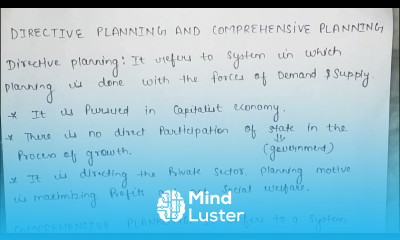 DIRECTIVE PLANNING AND COMPREHENSIVE PLANNING
Directive planning: It refers to system in which
planning is done with the forces of Demand & Supply.
* It is Pursued in Capitalist economy.
* There is no direct Participation of state in the
Process of growth. (government)
* It is directing the Private Sector. Planning motive
is maximizing Profits not Social welfare.
Mind
Luster
COMPREHENSIVE PLANNING refers to a system